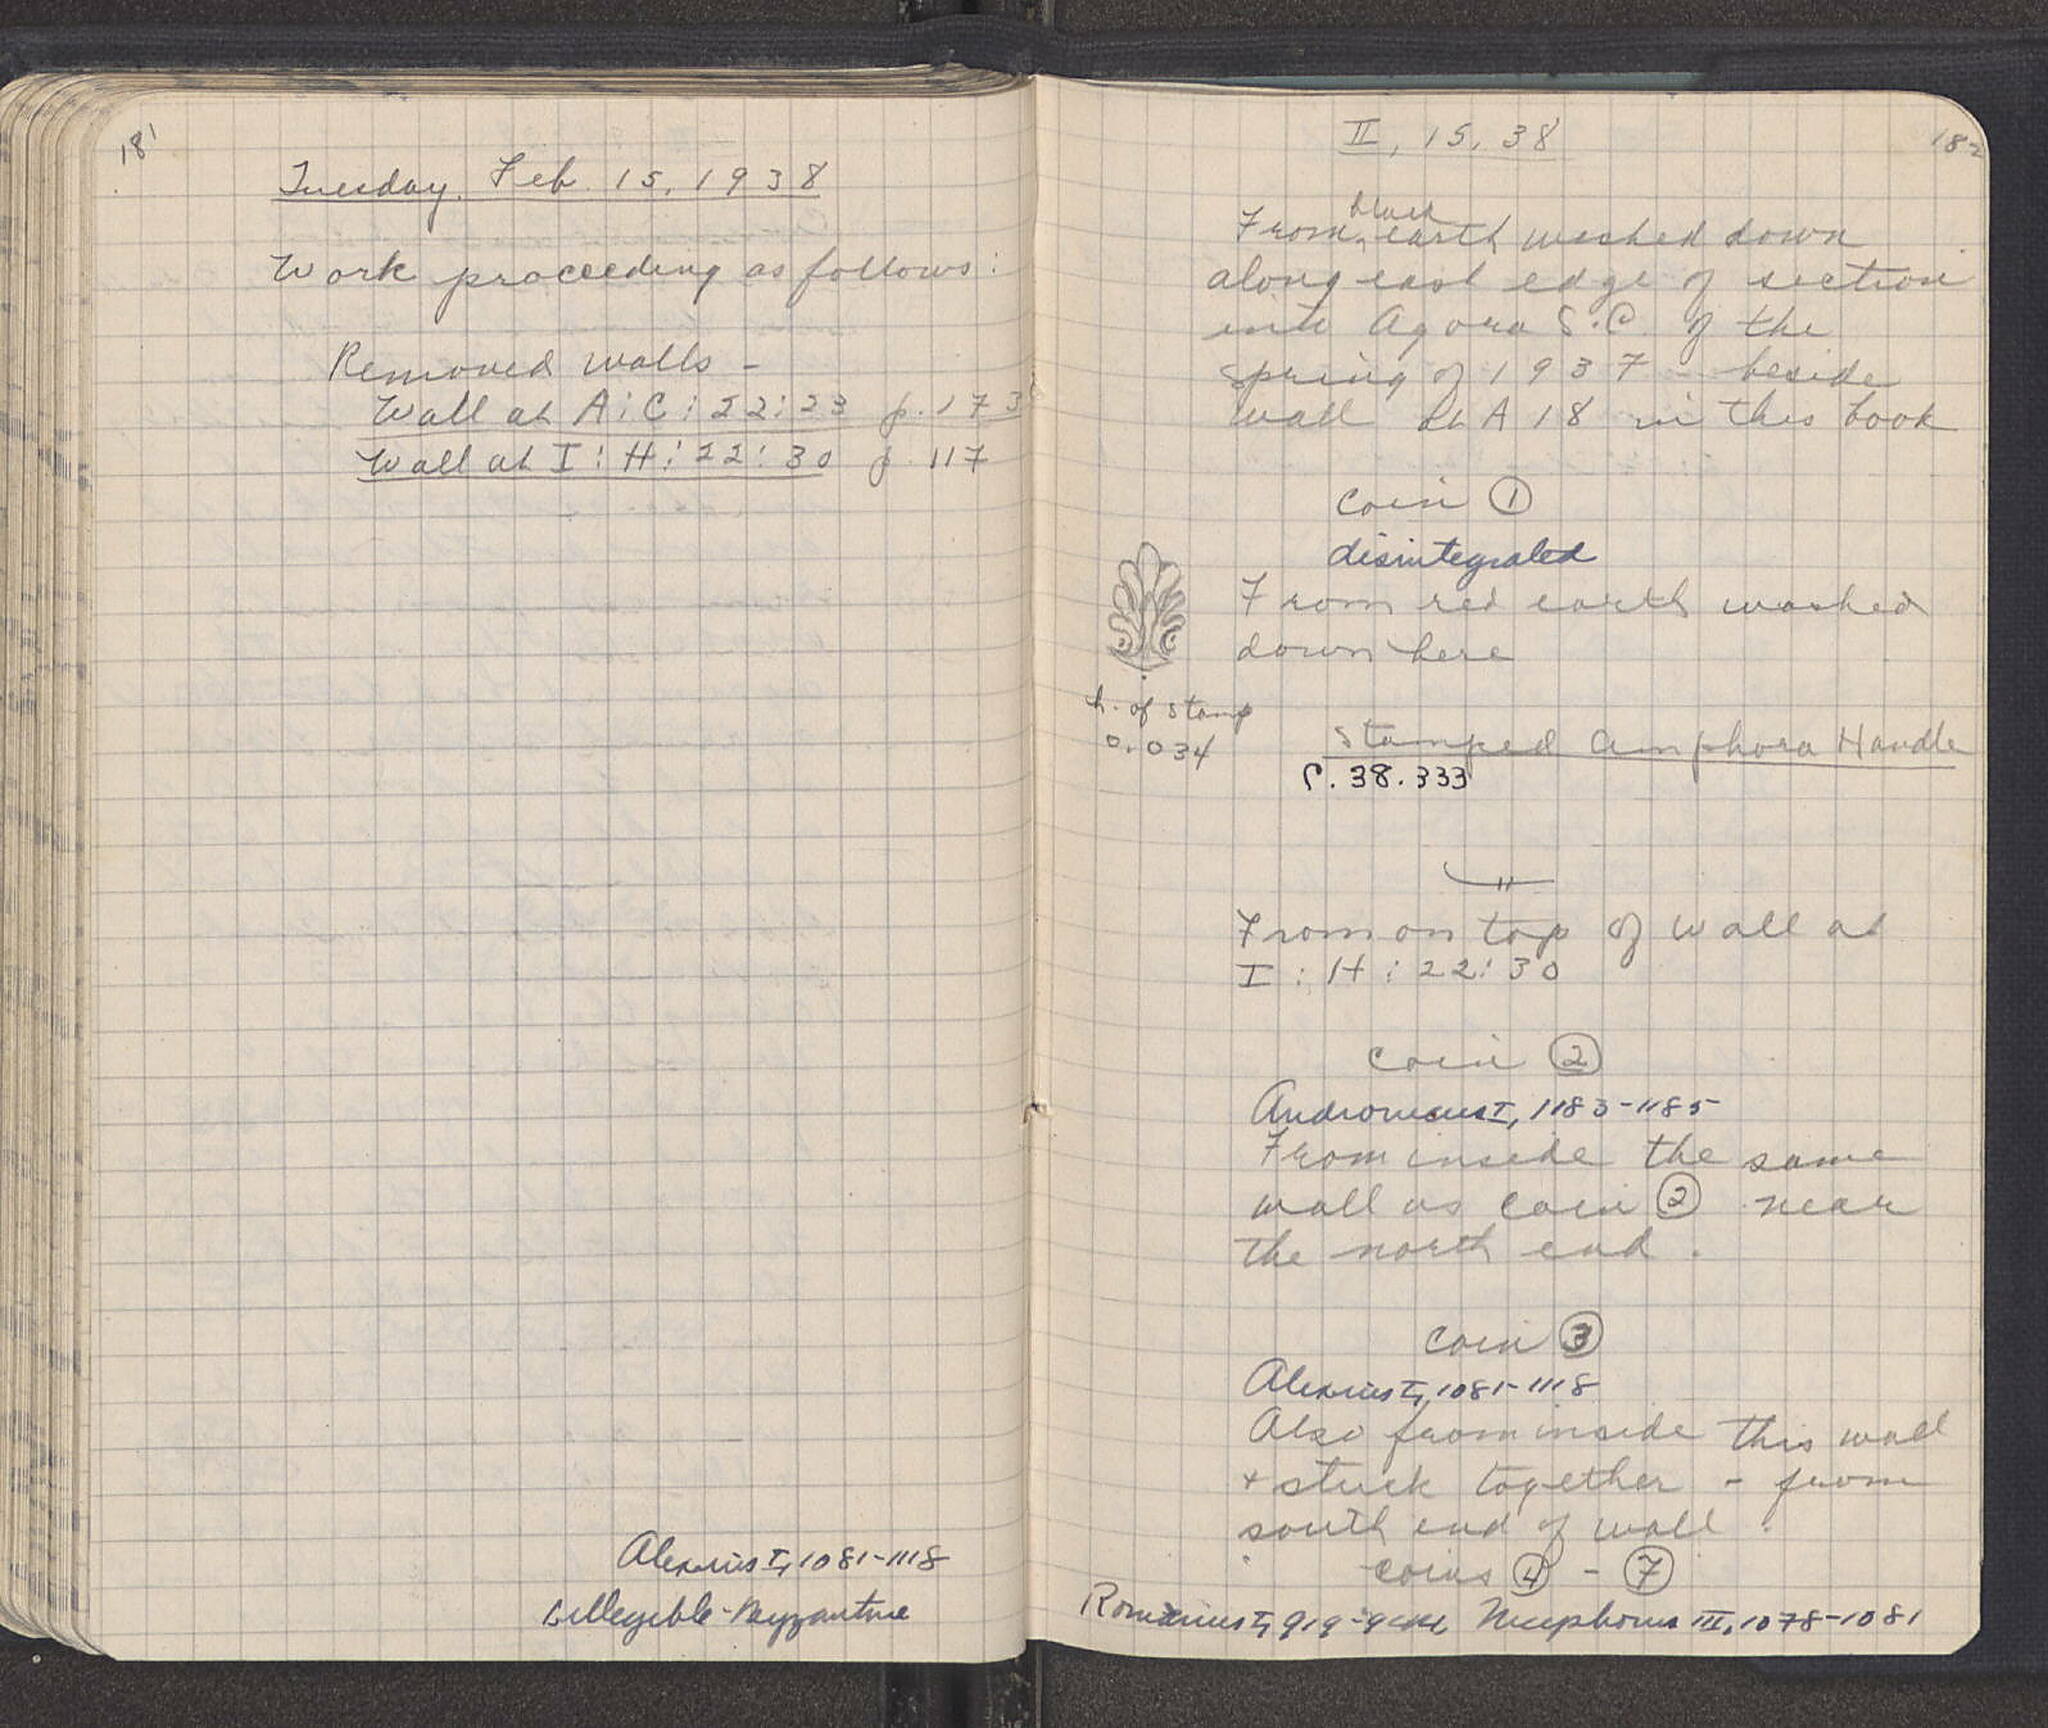 181
Tuesday. Feb. 15, 1938
Work proceeding as follows:
Removed walls -
Wall at A:C:22:23 p. 173
Wall at I:H:22:30 p 117
Alexius I, 1081-1118
Illegible-Byzantine
II, 15, 38
182
black
From earth washed down
along east edge of section
into Agora S.C. of the
spring of 1937 - beside
wall at A 18 in this book
Coin ①
disintegrated
From red earth washed
down here
h. of stamp
0.034
Stamped Amphora Handle
C. 38. 333
From on top of wall at
I : H : 22: 30
Coin ②
Andronicus I, 1183-1185
From inside the same
wall as coin ② near
the north end.
Coin ③
Alexius I, 1081-1118
Also from inside this wall
+ stuck together - from
south end of wall.
Coins ④ - ⑦
Romanus I, 919-944, Nicephorus III, 1078-1081